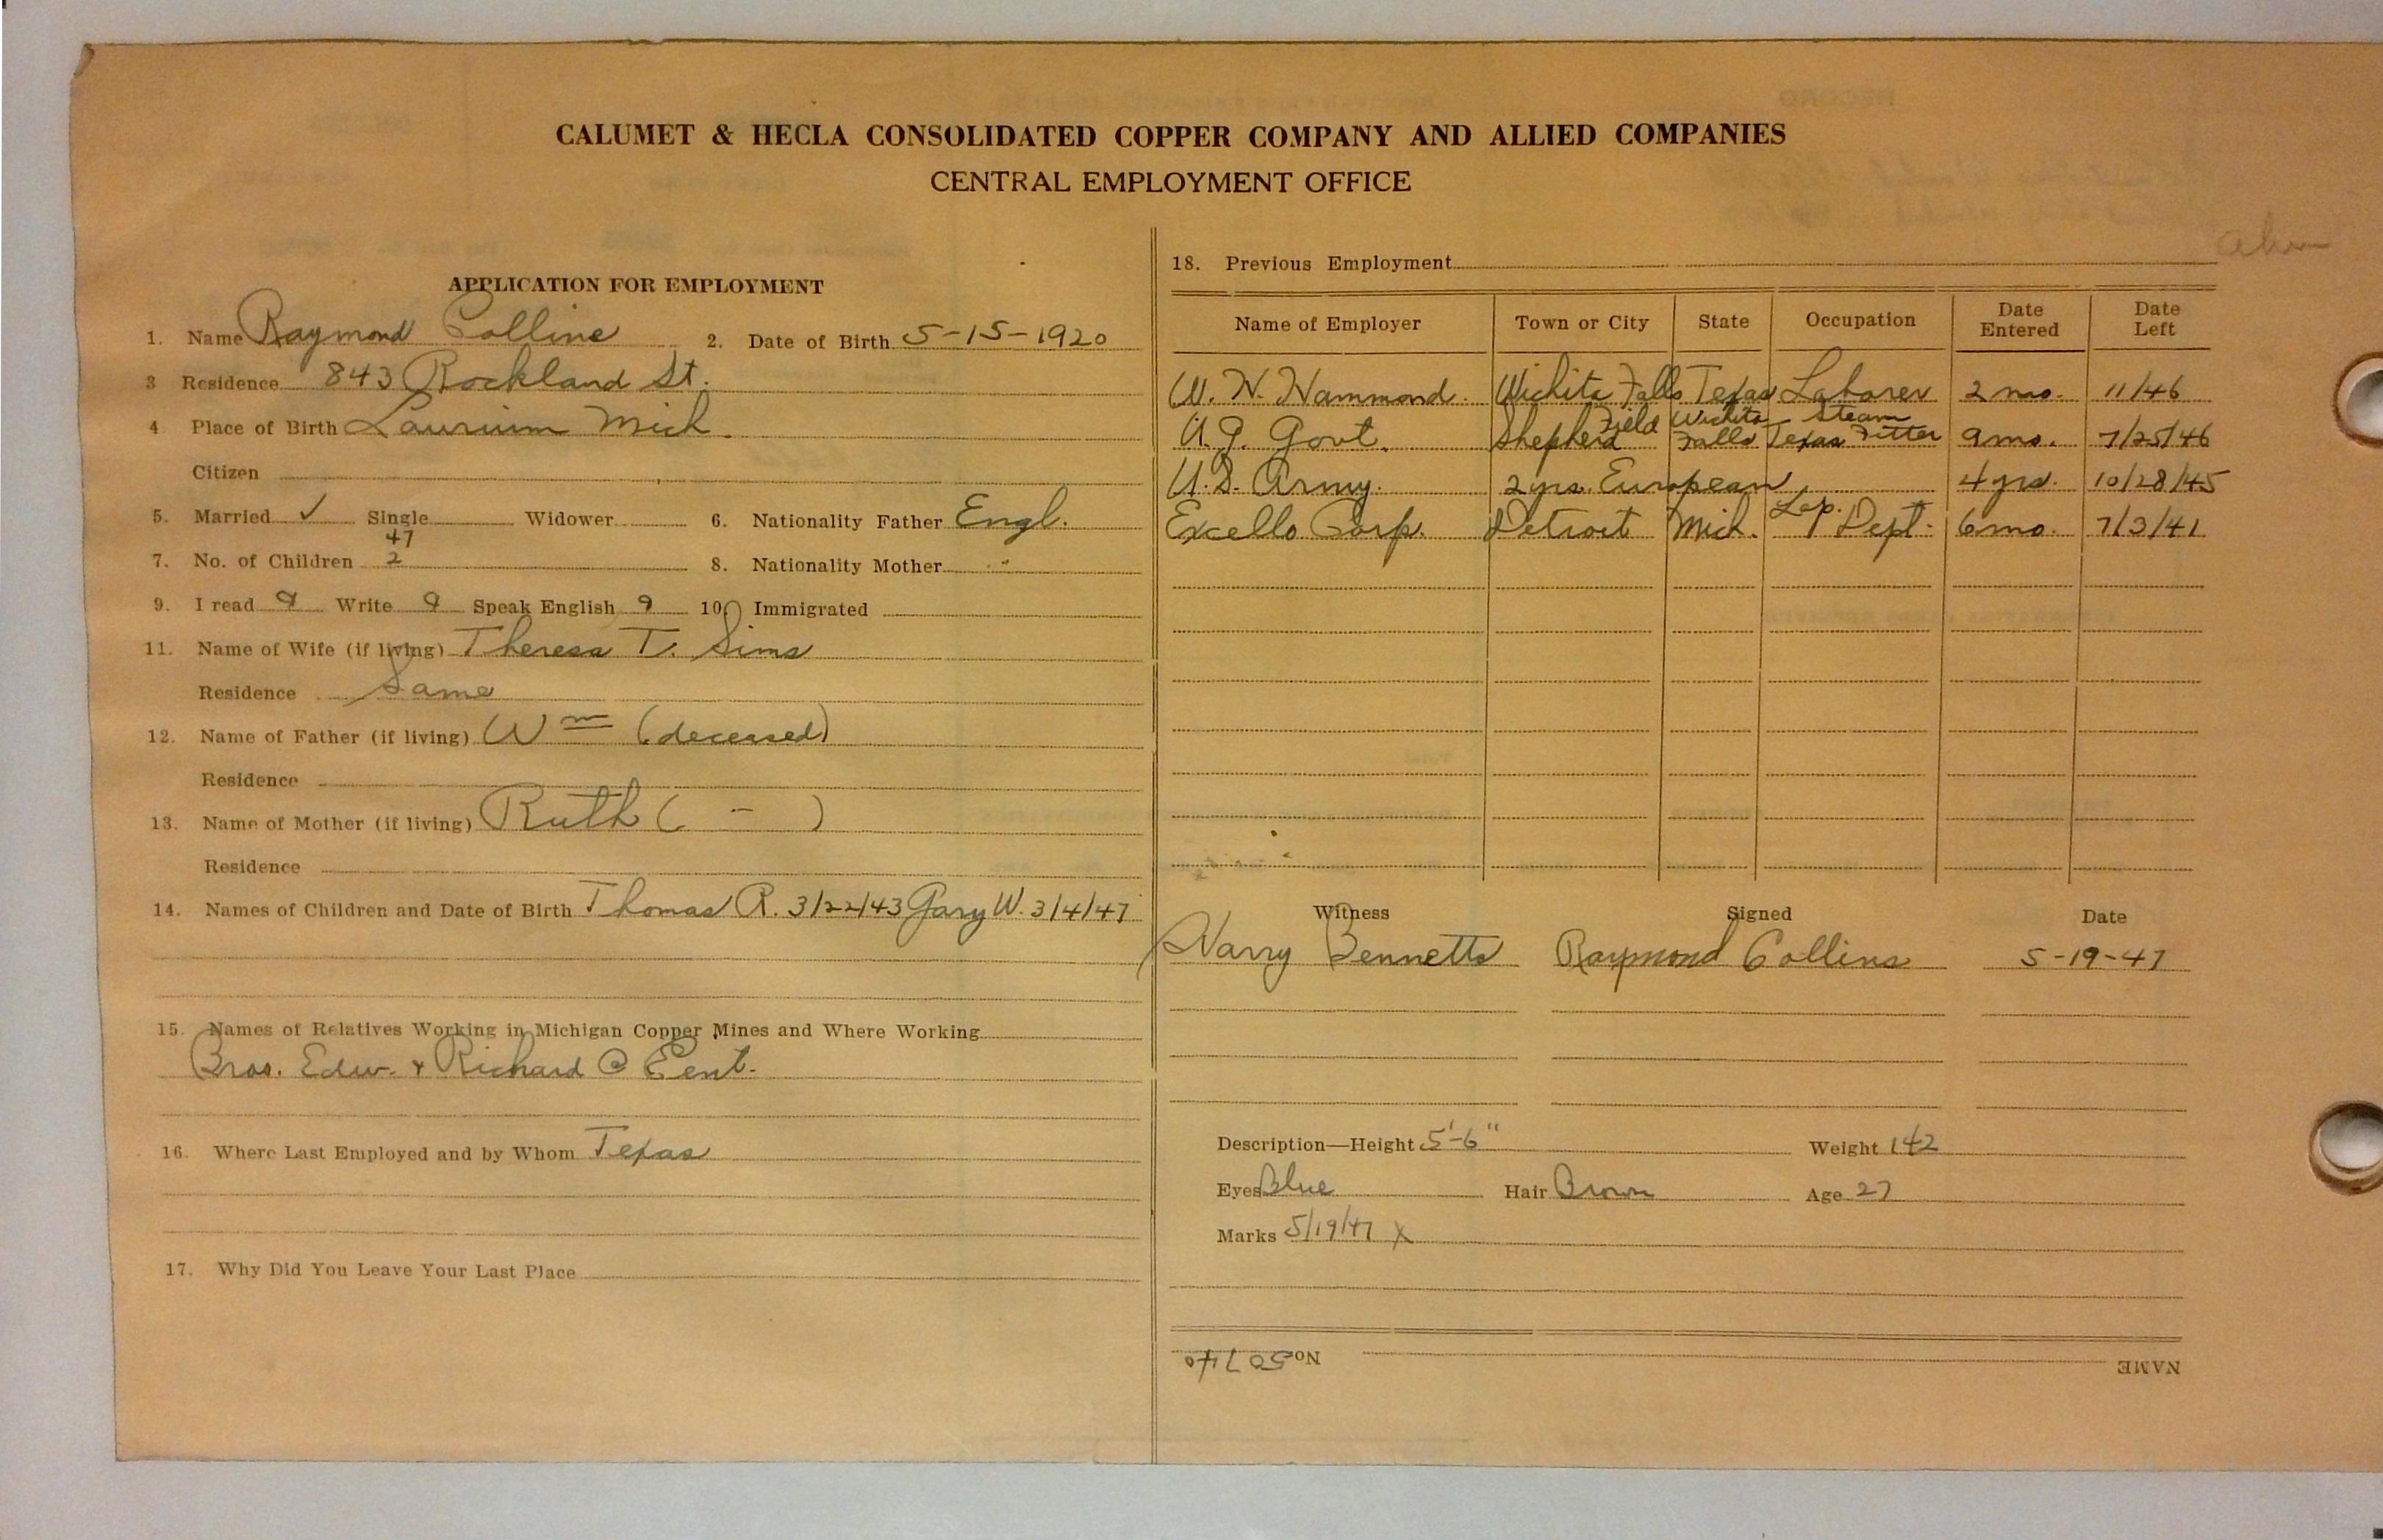 CALUMET & HECLA CONSOLIDATED COPPER COMPANY AND ALLIED COMPANIES
CENTRAL EMPLOYMENT OFFICE
APPLICATION FOR EMPLOYMENT
1. Name Raymond Collins 2. Date of Birth 5-15-1920
3 Residence 843 Rockland St.
4 Place of Birth Laurium Mich.
Citizen
5. Married ✓ Single Widower 6. Nationality Father Engl.
47
7. No. of Children 2 8. Nationality Mother "
9. I read 9 Write 9 Speak English 9 10. Immigrated
11. Name of Wife (if living) Theresa T. Sims
Residence Same
12. Name of Father (if living) Wm (deceased)
Residence
13. Name of Mother (if living) Ruth ( - )
Residence
14. Names of Children and Date of Birth Thomas R. 3/22/43 Gary W. 3/4/47
15. Names of Relatives Working in Michigan Copper Mines and Where Working
Bros. Edw. & Richard @ Cent.
16. Where Last Employed and by Whom Texas
17. Why Did You Leave Your Last Place
18. Previous Employment
Name of Employer Town or City State Occupation Date Entered Date Left
W. H. Hammond. Wichita Falls Texas Laborer 2 mo. 11/46
U.S. Govt. Shepherd Field Wichita Falls Texas Steam Fitter 9 mo. 7/25/46
U.S. Army. 2 yrs. European 4 yrs. 10/28/45
Excello Corp. Detroit Mich. Lap. Dept. 6 mo. 7/3/41
Witness Signed Date
Harry Bennetts Raymond Collins 5-19-47
Description—Height 5'-6" Weight 142
Eyes Blue Hair Brown Age 27
Marks 5/19/47 X
NAME No. 50740